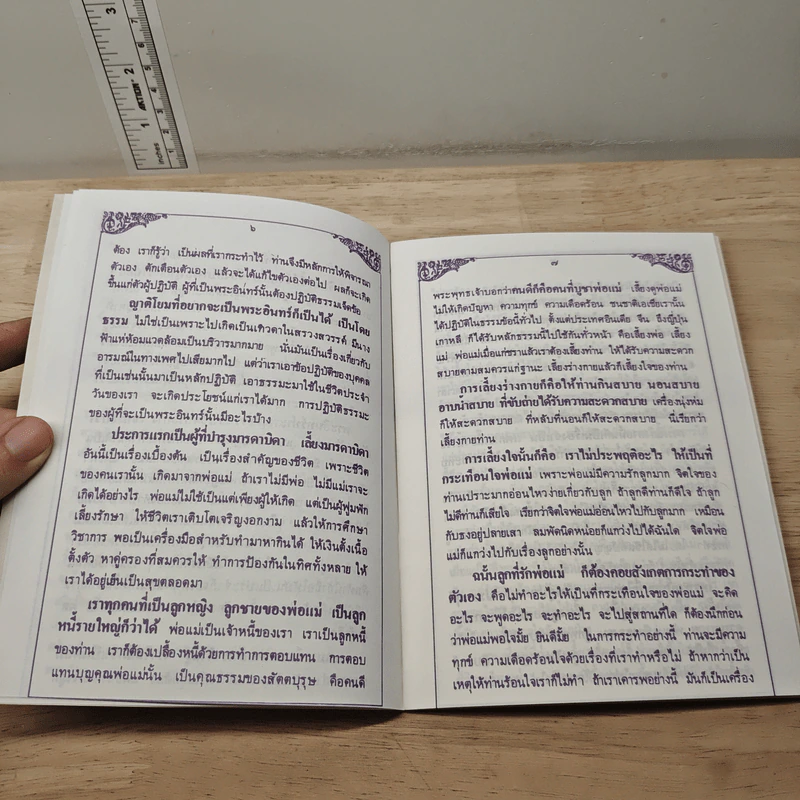 ๖
ต้อง เราก็รู้ว่า เป็นผลที่เรากระทำไว้ ท่านจึงมีหลักการให้พิจารณา
ตัวเอง ตักเตือนตัวเอง แล้วจะได้แก้ไขตัวเองต่อไป ผลก็จะเกิด
ขึ้นแก่ตัวผู้ปฏิบัติ ผู้ที่เป็นพระอินทร์นั้นต้องปฏิบัติธรรมเจ็ดข้อ
ญาติโยมที่อยากจะเป็นพระอินทร์ก็เป็นได้ เป็นโดย
ธรรม ไม่ใช่เป็นเพราะไปเกิดเป็นเทวดาในสรวงสวรรค์ มีนาง
ฟ้าแห่ห้อมแวดล้อมเป็นบริวารมากมาย นั่นมันเป็นเรื่องเกี่ยวกับ
อารมณ์ในทางเพศไปเสียมากไป แต่ว่าเราเอาข้อปฏิบัติของบุคคล
ที่เป็นเช่นนั้นมาเป็นหลักปฏิบัติ เอาธรรมะมาใช้ในชีวิตประจำ
วันของเรา จะเกิดประโยชน์แก่เราได้มาก การปฏิบัติธรรมะ
ของผู้ที่จะเป็นพระอินทร์นั้นมีอะไรบ้าง
ประการแรกเป็นผู้ที่บำรุงมารดาบิดา เลี้ยงมารดาบิดา
อันนี้เป็นเรื่องเบื้องต้น เป็นเรื่องสำคัญของชีวิต เพราะชีวิต
ของคนเรานั้น เกิดมาจากพ่อแม่ ถ้าเราไม่มีพ่อ ไม่มีแม่เราจะ
เกิดได้อย่างไร พ่อแม่ไม่ใช่เป็นแต่เพียงผู้ให้เกิด แต่เป็นผู้พูมพัก
เลี้ยงรักษา ให้ชีวิตเราเติบโตเจริญงอกงาม แล้วให้การศึกษา
วิชาการ พอเป็นเครื่องมือสำหรับทำมาหากินได้ ให้เงินตั้งเนื้อ
ตั้งตัว หาคู่ครองที่สมควรให้ ทำการป้องกันในทิศทั้งหลาย ให้
เราได้อยู่เย็นเป็นสุขตลอดมา
เราทุกคนที่เป็นลูกหญิง ลูกชายของพ่อแม่ เป็นลูก
หนี้รายใหญ่ก็ว่าได้ พ่อแม่เป็นเจ้าหนี้ของเรา เราเป็นลูกหนี้
ของท่าน เราก็ต้องเปลื้องหนี้ด้วยการทำการตอบแทน การตอบ
แทนบุญคุณพ่อแม่นั้น เป็นคุณธรรมของสัตตบุรุษ คือคนดี
๗
พระพุทธเจ้าบอกว่าคนดีก็คือคนที่บูชาพ่อแม่ เลี้ยงดูพ่อแม่
ไม่ให้เกิดปัญหา ความทุกข์ ความเดือดร้อน ชนชาติเอเชียเรานั้น
ได้ปฏิบัติในธรรมข้อนี้ทั่วไป ตั้งแต่ประเทศอินเดีย จีน ถึงญี่ปุ่น
เกาหลี ก็ได้รับหลักธรรมนี้ไปใช้กันทั่วหน้า คือเลี้ยงพ่อ เลี้ยง
แม่ พ่อแม่เมื่อแก่ชราแล้วเราต้องเลี้ยงท่าน ให้ได้รับความสะดวก
สบายตามสมควรแก่ฐานะ เลี้ยงร่างกายแล้วก็เลี้ยงใจของท่าน
การเลี้ยงร่างกายก็คือให้ท่านกินสบาย นอนสบาย
อาบน้ำสบาย ที่ขับถ่ายได้รับความสะดวกสบาย เครื่องนุ่งห่ม
ก็ให้สะดวกสบาย ที่หลับที่นอนก็ให้สะดวกสบาย นี่เรียกว่า
เลี้ยงกายท่าน
การเลี้ยงใจนั้นก็คือ เราไม่ประพฤติอะไร ให้เป็นที่
กระเทือนใจพ่อแม่ เพราะพ่อแม่มีความรักลูกมาก จิตใจของ
ท่านเปราะมากอ่อนไหวง่ายเกี่ยวกับลูก ถ้าลูกดีท่านก็ดีใจ ถ้าลูก
ไม่ดีท่านก็เสียใจ เรียกว่าจิตใจพ่อแม่อ่อนไหวไปกับลูกมาก เหมือน
กับธงอยู่ปลายเสา ลมพัดนิดหน่อยก็แกว่งไปได้ฉันใด จิตใจพ่อ
แม่ก็แกว่งไปกับเรื่องลูกอย่างนั้น
ฉนั้นลูกที่รักพ่อแม่ ก็ต้องคอยสังเกตการกระทำของ
ตัวเอง คือไม่ทำอะไรให้เป็นที่กระเทือนใจของพ่อแม่ จะคิด
อะไร จะพูดอะไร จะทำอะไร จะไปสู่สถานที่ใด ก็ต้องนึกก่อน
ว่าพ่อแม่พอใจมั้ย ยินดีมั้ย ในการกระทำอย่างนี้ ท่านจะมีความ
ทุกข์ ความเดือดร้อนใจด้วยเรื่องที่เราทำหรือไม่ ถ้าหากว่าเป็น
เหตุให้ท่านร้อนใจเราก็ไม่ทำ ถ้าเราเคารพอย่างนี้ มันก็เป็นเครื่อง
inches
1
2
3
AKTION
1
2
3
4
5
6
7